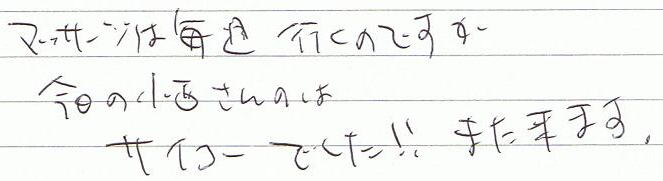 マッサージは毎週行くのですが
今日の小西さんのは
サイコーでした!! また来ます。